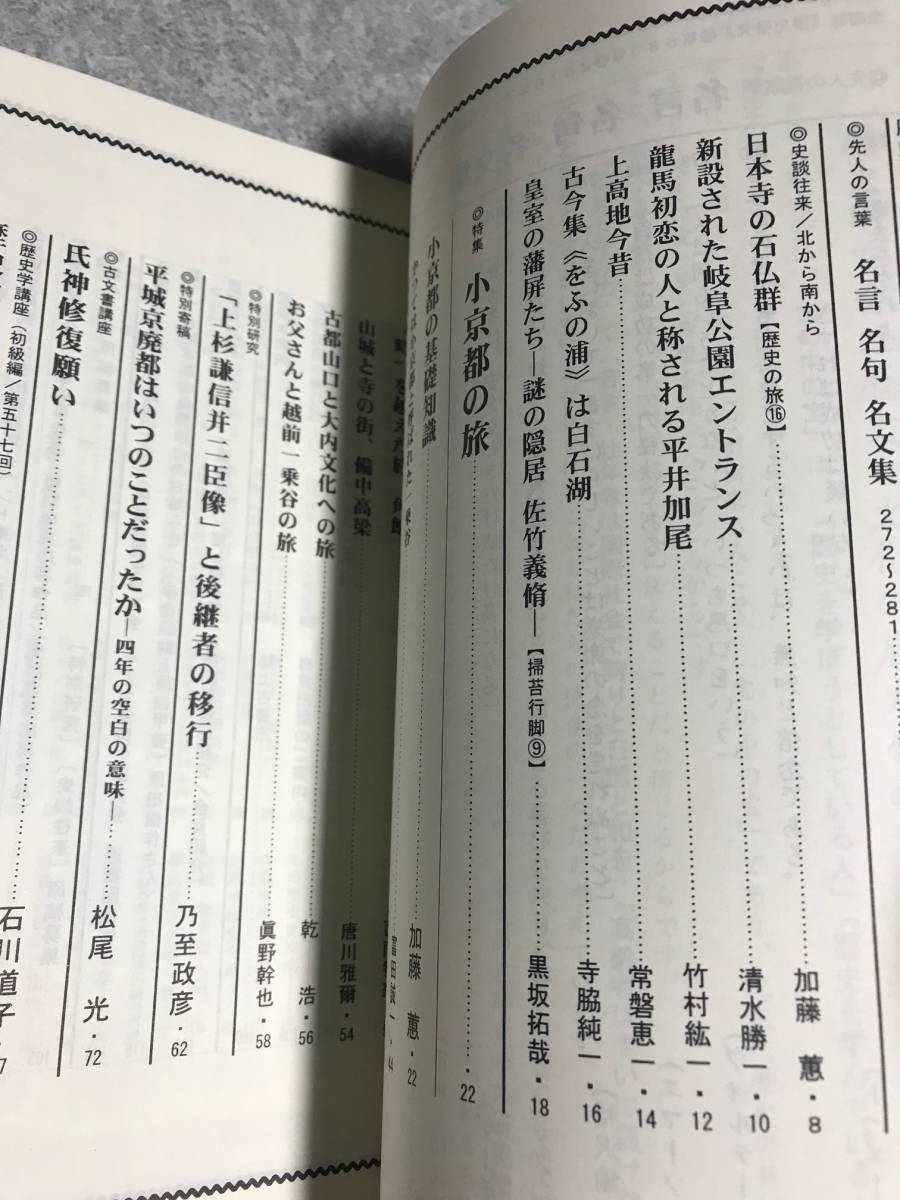 ◎先人の言葉 名言 名句 名文集 272〜281
◎史談往来/北から南から
日本寺の石仏群【歴史の旅⑯】 加藤 蕙・8
新設された岐阜公園エントランス 清水勝一・10
龍馬初恋の人と称される平井加尾 竹村紘一・12
上高地今昔 常磐恵一・14
古今集《をふの浦》は白石湖 寺脇純一・16
皇室の藩屏たち―謎の隠居 佐竹義脩―【掃苔行脚⑨】 黒坂拓哉・18
◎特集 小京都の旅 22
小京都の基礎知識 加藤 蕙・22
山城と寺の街、備中高梁 唐川雅爾・54
古都山口と大内文化への旅 乾 浩・56
お父さんと越前一乗谷の旅 眞野幹也・58
◎特別研究
「上杉謙信并二臣像」と後継者の移行 乃至政彦・62
◎特別寄稿
平城京廃都はいつのことだったか―四年の空白の意味― 松尾 光・72
◎古文書講座
氏神修復願い 石川道子
◎歴史学講座(初級編/第五十七回)